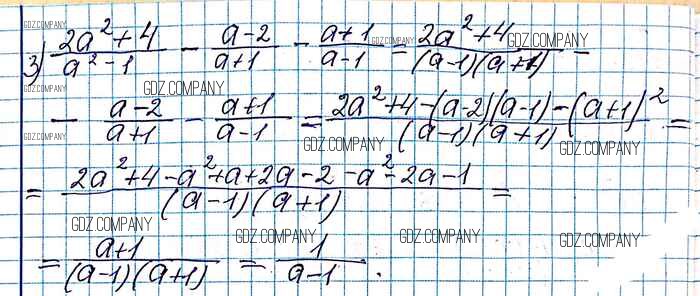 GDZ.COMPANY
3) (2a²+4)/(a²-1) - (a-2)/(a+1) - (a+1)/(a-1) = (2a²+4)/((a-1)(a+1)) -
GDZ.COMPANY GDZ.COMPANY
GDZ.COMPANY GDZ.COMPANY
- (a-2)/(a+1) - (a+1)/(a-1) = (2a²+4-(a-2)(a-1)-(a+1)²)/((a-1)(a+1)) =
GDZ.COMPANY GDZ.COMPANY GDZ.COMPANY
= (2a²+4-a²+a+2a-2-a²-2a-1)/((a-1)(a+1)) =
GDZ.COMPANY
GDZ.COMPANY GDZ.COMPANY GDZ.COMPANY
= (a+1)/((a-1)(a+1)) = 1/(a-1).